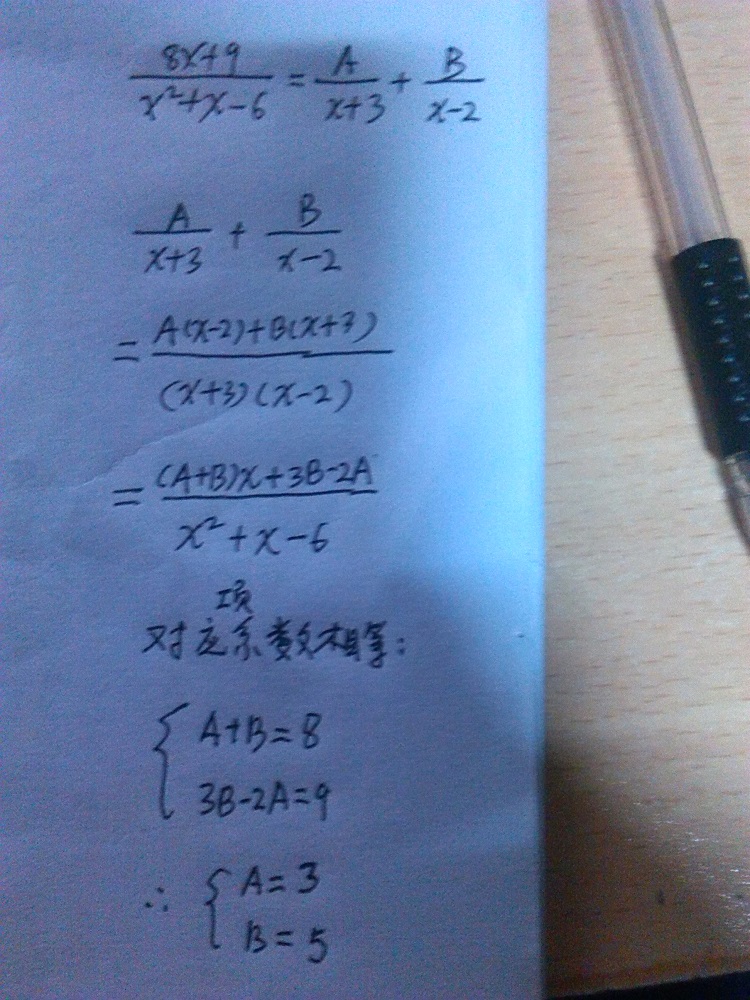 8x+9/x²+x-6 = A/x+3 + B/x-2
A/x+3 + B/x-2
= A(x-2)+B(x+3)/(x+3)(x-2)
= (A+B)x+3B-2A/x²+x-6
项
对应系数相等：
{ A+B=8
3B-2A=9
∴ { A=3
B=5